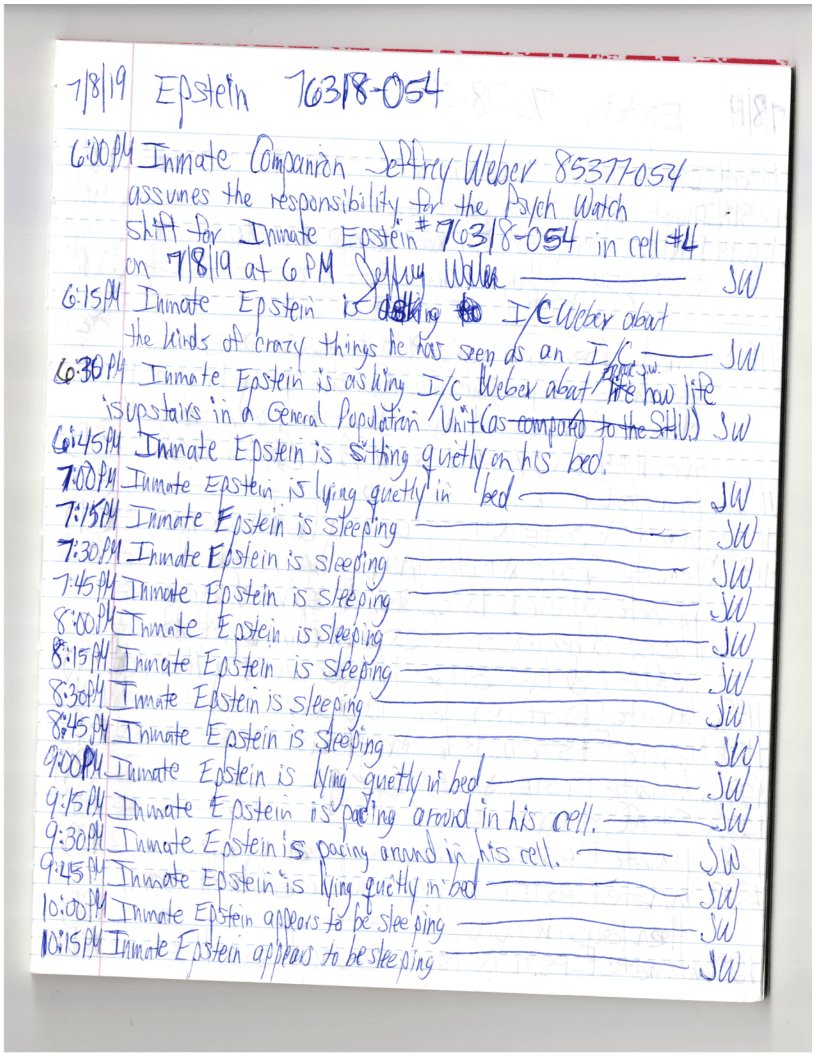 7/8/19 Epstein 76318-054
6:00PM Inmate Companion Jeffrey Weber 85377-054
assumes the responsibility for the Psych Watch
shift for Inmate Epstein #76318-054 in cell #4
on 7/8/19 at 6 PM Jeffrey Weber JW
6:15PM Inmate Epstein is asking I/C Weber about
the kinds of crazy things he has seen as an I/C JW
6:30PM Inmate Epstein is asking I/C Weber about how life
is upstairs in a General Population Unit (as compared to the S.H.U.) JW
6:45PM Inmate Epstein is sitting quietly on his bed.
7:00PM Inmate Epstein is lying quetly in bed JW
7:15PM Inmate Epstein is sleeping JW
7:30PM Inmate Epstein is sleeping JW
7:45PM Inmate Epstein is sleeping JW
8:00PM Inmate Epstein is sleeping JW
8:15PM Inmate Epstein is sleeping JW
8:30PM Inmate Epstein is sleeping JW
8:45PM Inmate Epstein is sleeping JW
9:00PM Inmate Epstein is lying quetly in bed JW
9:15PM Inmate Epstein is pacing around in his cell. JW
9:30PM Inmate Epstein is pacing around in his cell. JW
9:45PM Inmate Epstein is lying quetly in bed JW
10:00PM Inmate Epstein appears to be sleeping JW
10:15PM Inmate Epstein appears to be sleeping JW